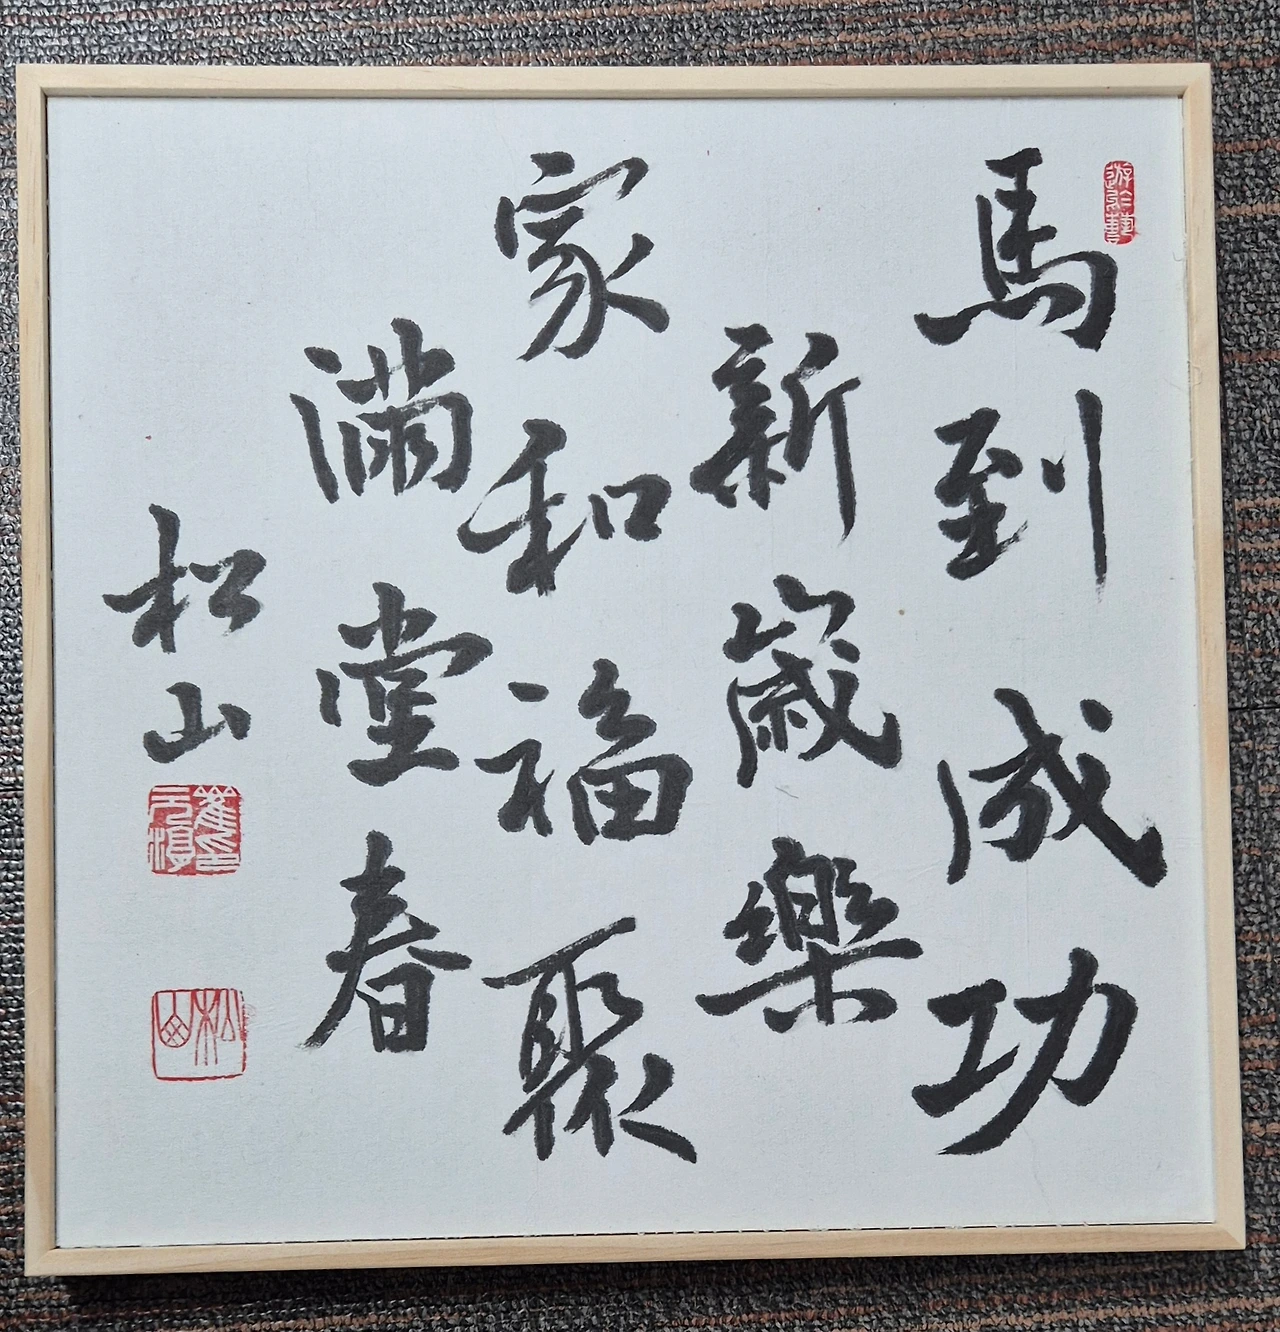 馬到成功
新歲樂
家和福聚
滿堂春
松山
松山